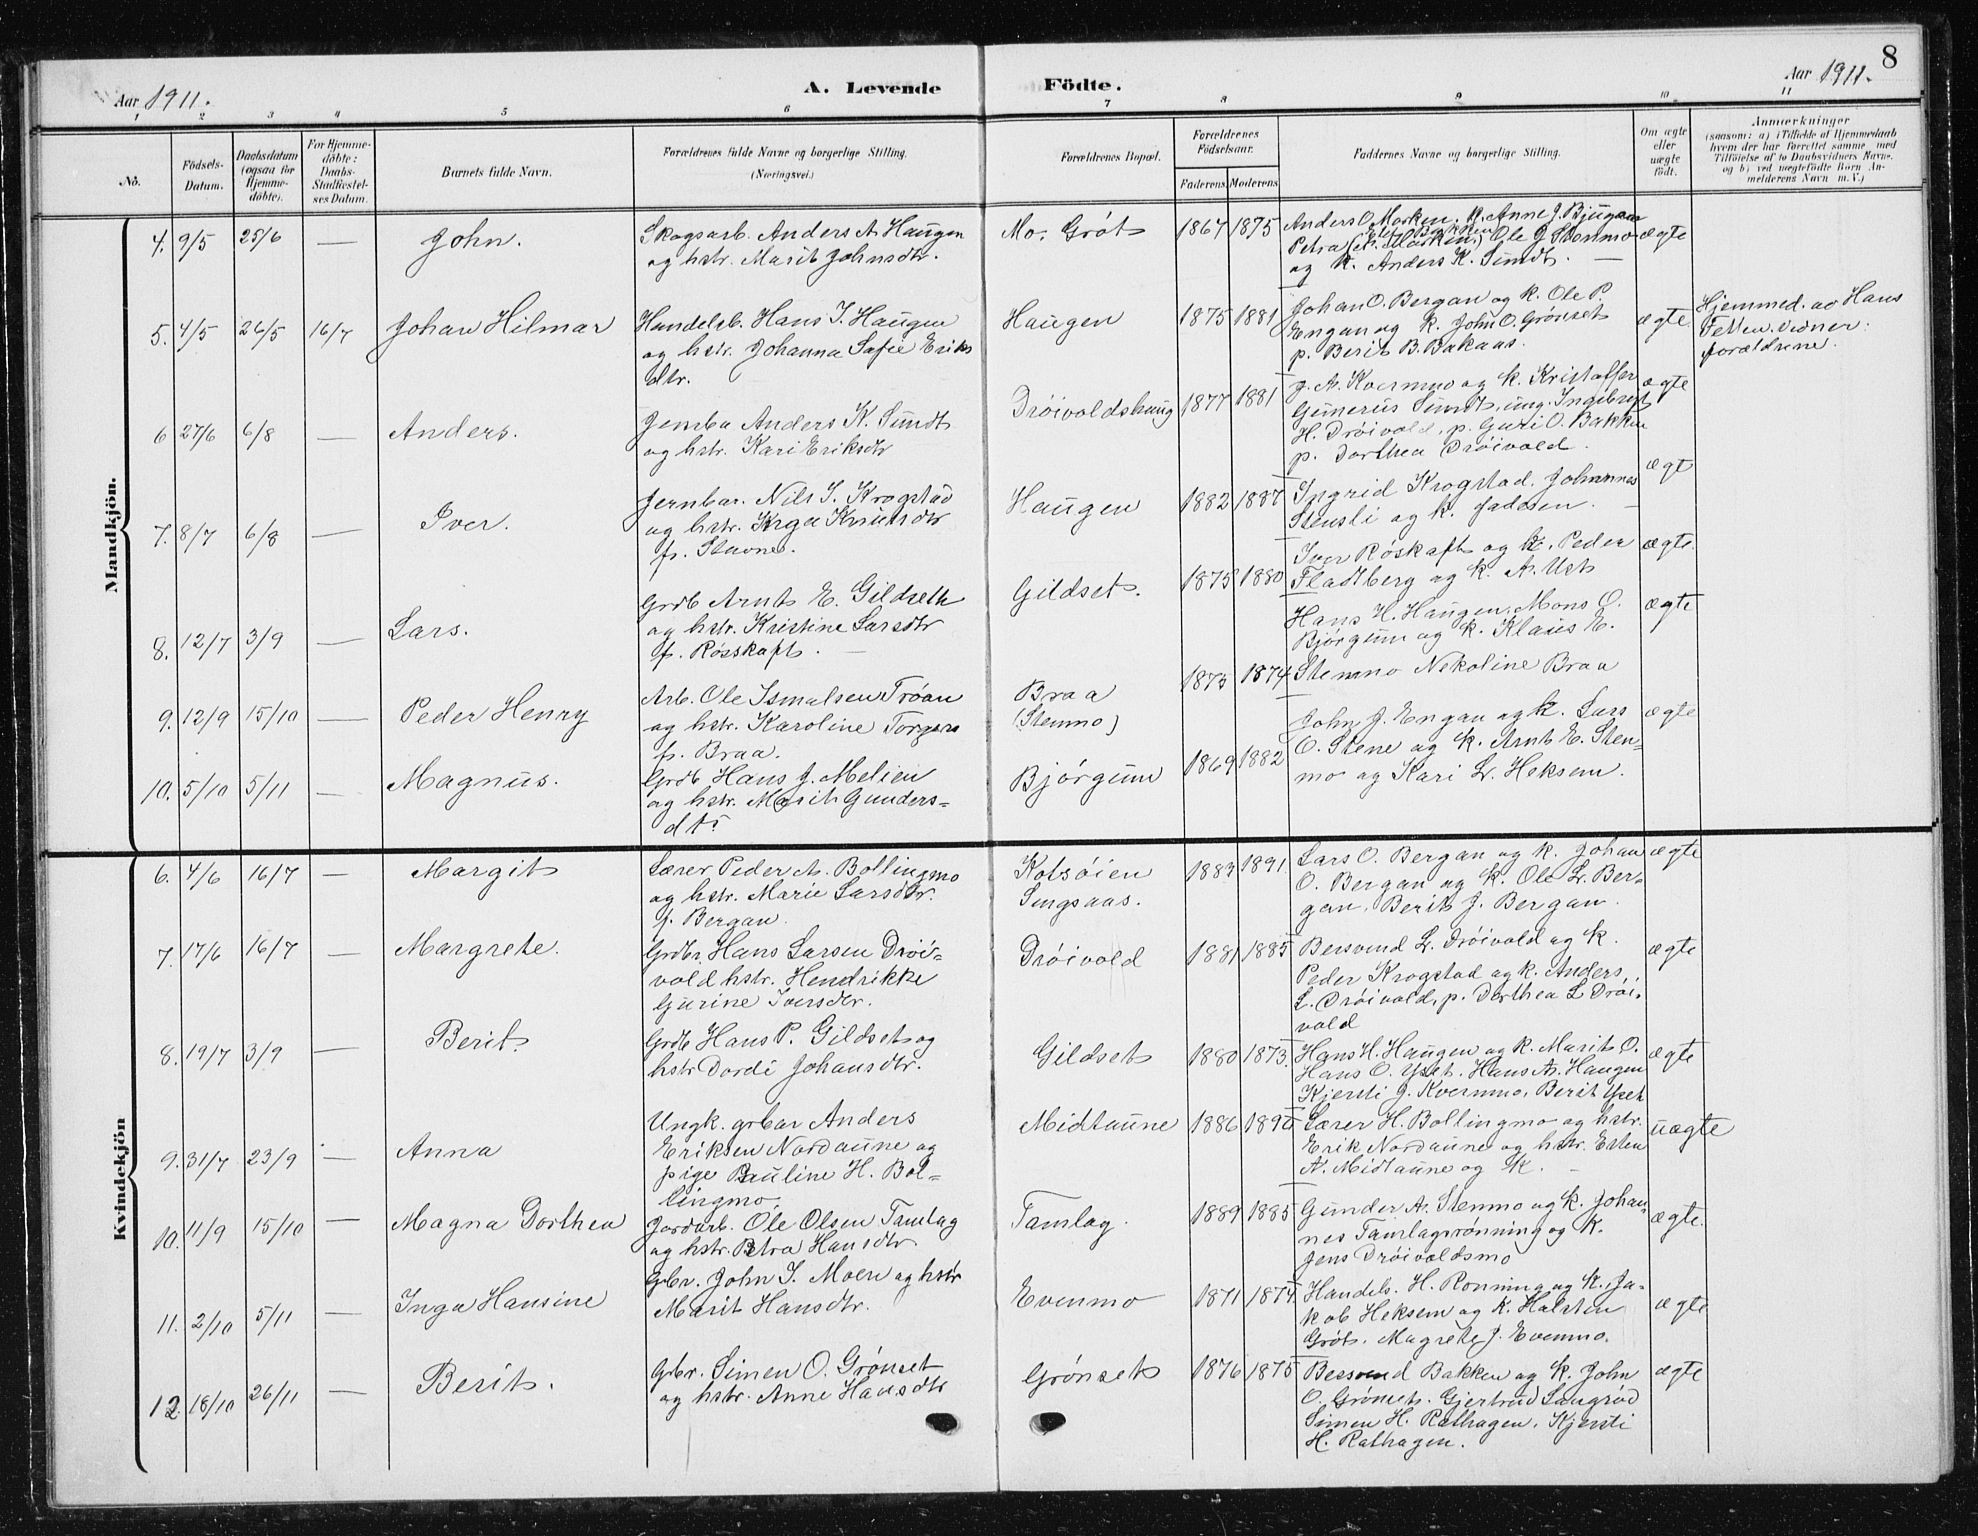 8
Aar 1911.
A. Levende Födte.
Aar 1911.
1 2 3 4 5 6 7 8 9 10 11
No.
Födsels-Datum.
Daabsdatum (ogsaa for Hjemme-döbte).
For Hjemme-döbte: Daabs-Stadfæstel-ses Datum.
Barnets fulde Navn.
Forældrenes fulde Navne og borgerlige Stilling. (Næringsvei.)
Forældrenes Bopæl.
Forældrenes Födselsaar.
Faderens Moderens
Faddernes Navne og borgerlige Stilling.
Om ægte eller uægte födt.
Anmærkninger
(saasom: a) i Tilfælde af Hjemmedaab hvem der har forrettet samme, med Tilföielse af to Daabsvidners Navne, og b) ved uægtefödte Börn An-melderens Navn m. V.)
Mandkjön.
4. 9/5 25/6 — John.
Skogsarb. Anders A. Haugen
og hstr. Marit Johnsdtr.
Mo. Grøt 1867 1875
Anders O. Morken, K. Anne J. Bjugan
Petra Ole J. Stenmo
og K. Anders K. Sundt. —
ægte
5. 4/5 26/5 16/7 Johan Hilmar
Handelsb. Hans I. Haugen
og hstr. Johanna Sofie Eriks
dtr.
Haugen 1875 1881
Johan O. Bergan og k. Ole P.
Engan og k. John O. Grønset
p. Berit B. Bakaas.
ægte
Hjemmed. av Hans
Vidner:
forældrene.
6 27/6 6/8 — Anders.
Jernba Anders K. Sundt
og hstr. Kari Eriksdtr
Drøivoldshaug 1877 1881
J. A. Kvernmo og k. Kristoffer
Gunerus Sundt, ung. Ingebrigt
H. Drøivold, p. Guri O. Bakken
p. Dorthea Drøivold.
ægte
7. 8/7 6/8 — Iver.
Jernbar. Nils I. Krogstad
og hstr. Inga Knutsdtr
f. Stavne.
Haugen 1882 1887
Ingrid Krogstad. Johannes
Stensli og k. fadøsen. —
ægt
8. 12/7 3/9 — Lars.
Grdb Arnt E. Gildseth
og hstr. Kristine Larsdtr
f. Røsskaft. —
Gildset. 1875 1880
Iver Røskaft og k. Peder
Fladtberg og k. A. Ust
ægte
9. 12/9 15/10 — Peder Henry
Arb. Ole Ismalsen Trøan
og hstr. Karoline Torgers
f. Braa.
Braa
(Stenmo)
1875 1874
Hans H. Haugen, Mons O.
Bjørgum og k. Klaus E.
Stenmo Nekoline Braa
ægte
10. 5/10 5/11 — Magnus.
Grdb Hans J. Melien
og hstr. Marit Gunders-
dtr
Bjørgum 1869 1882
John J. Engan og k. Lars
O. Stene og k. Arnt E. Sten-
mo og Kari L. Heksem.
ægte
Kvindekjön
6. 4/6 16/7 — Margit
Lærer Peder A. Bollingmo
og hstr. Marie Larsdtr.
f. Bergan.
Kotsøien
Singsaas.
1883 1891
Lars O. Bergan og k. Johan
O. Bergan og k. Ole L. Ber-
gan. Berit J. Bergan.
ægte
7. 17/6 16/7 — Margrete.
Grdbr. Hans Larsen Drøi-
vold hstr. Hendrikke
Gurine Iversdtr.
Drøivold 1881 1885
Bersvend L. Drøivold og k.
Peder Krogstad og k. Anders
L. Drøivold, p. Dorthea L Drøi-
vold
ægte
8. 19/7 3/9 — Berit.
Grdb Hans P. Gildset og
hstr Dordi Johansdtr.
Gildset 1880 1873.
Hans H. Haugen og k. Marit O.
Hans O. Yset. Hans A. Haugen
Kjersti J. Kvernmo, Berit Yset
ægte
9. 31/7 23/9 — Anna
Ungk. grbar Anders
Eriksen Nordaune og
pige Pauline H. Bol-
lingmo.
Midtaune 1886 1890
Lærer H. Bollingmo og hstr.
Erik Nordaune og hstr. Esten
A. Midtaune og K. —
uægte
10. 11/9 15/10 — Magna Dorthea
Jordarb. Ole Olsen Tamlag
og hstr. Petra Hansdtr.
Tamlag. 1889 1885
Gunder A. Stenmo og k. Johan-
nes Tamlagsrønning og K.
Jens Drøivoldsmo
ægte.
11. 2/10 5/11 — Inga Hansine
Gbr. John I. Moen og hstr
Marit Hansdtr.
Evenmo 1871 1874.
Handelsb. H. Rønning og k. Ja-
kob Heksem og K. Halsten
Grøt. Magrete J. Evenmo.
ægte
12. 18/10 26/11 — Berit.
Gbr. Simen O. Grønset
og hstr. Anne Hansdtr
Grønset 1876 1875
Bersvend Bakken og k. John
O. Grønset. Gjertrud Langrød
Simen H. Rathagen. Kjersti
H. Rathagen.
ægte